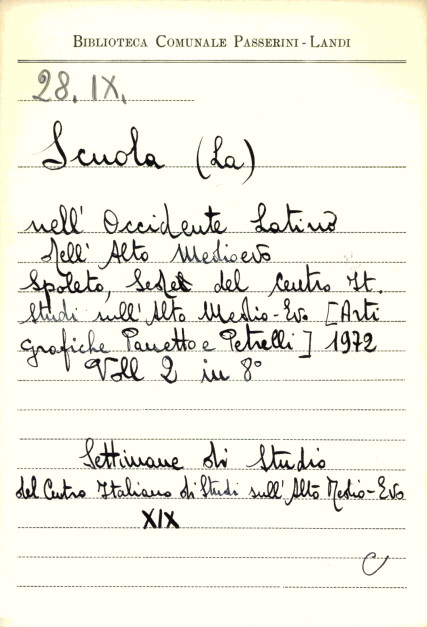 BIBLIOTECA COMUNALE PASSERINI - LANDI
28. IX.
Scuola (La)
nell' Occidente Latino
dell' Alto Medioevo
Spoleto, Sede del Centro It.
Studi sull'Alto Medio-Evo [Arti
Grafiche Panetto e Petrelli] 1972
Voll 2 in 8°
Settimane di Studio
del Centro Italiano di Studi sull'Alto Medio-Evo
XIX
C